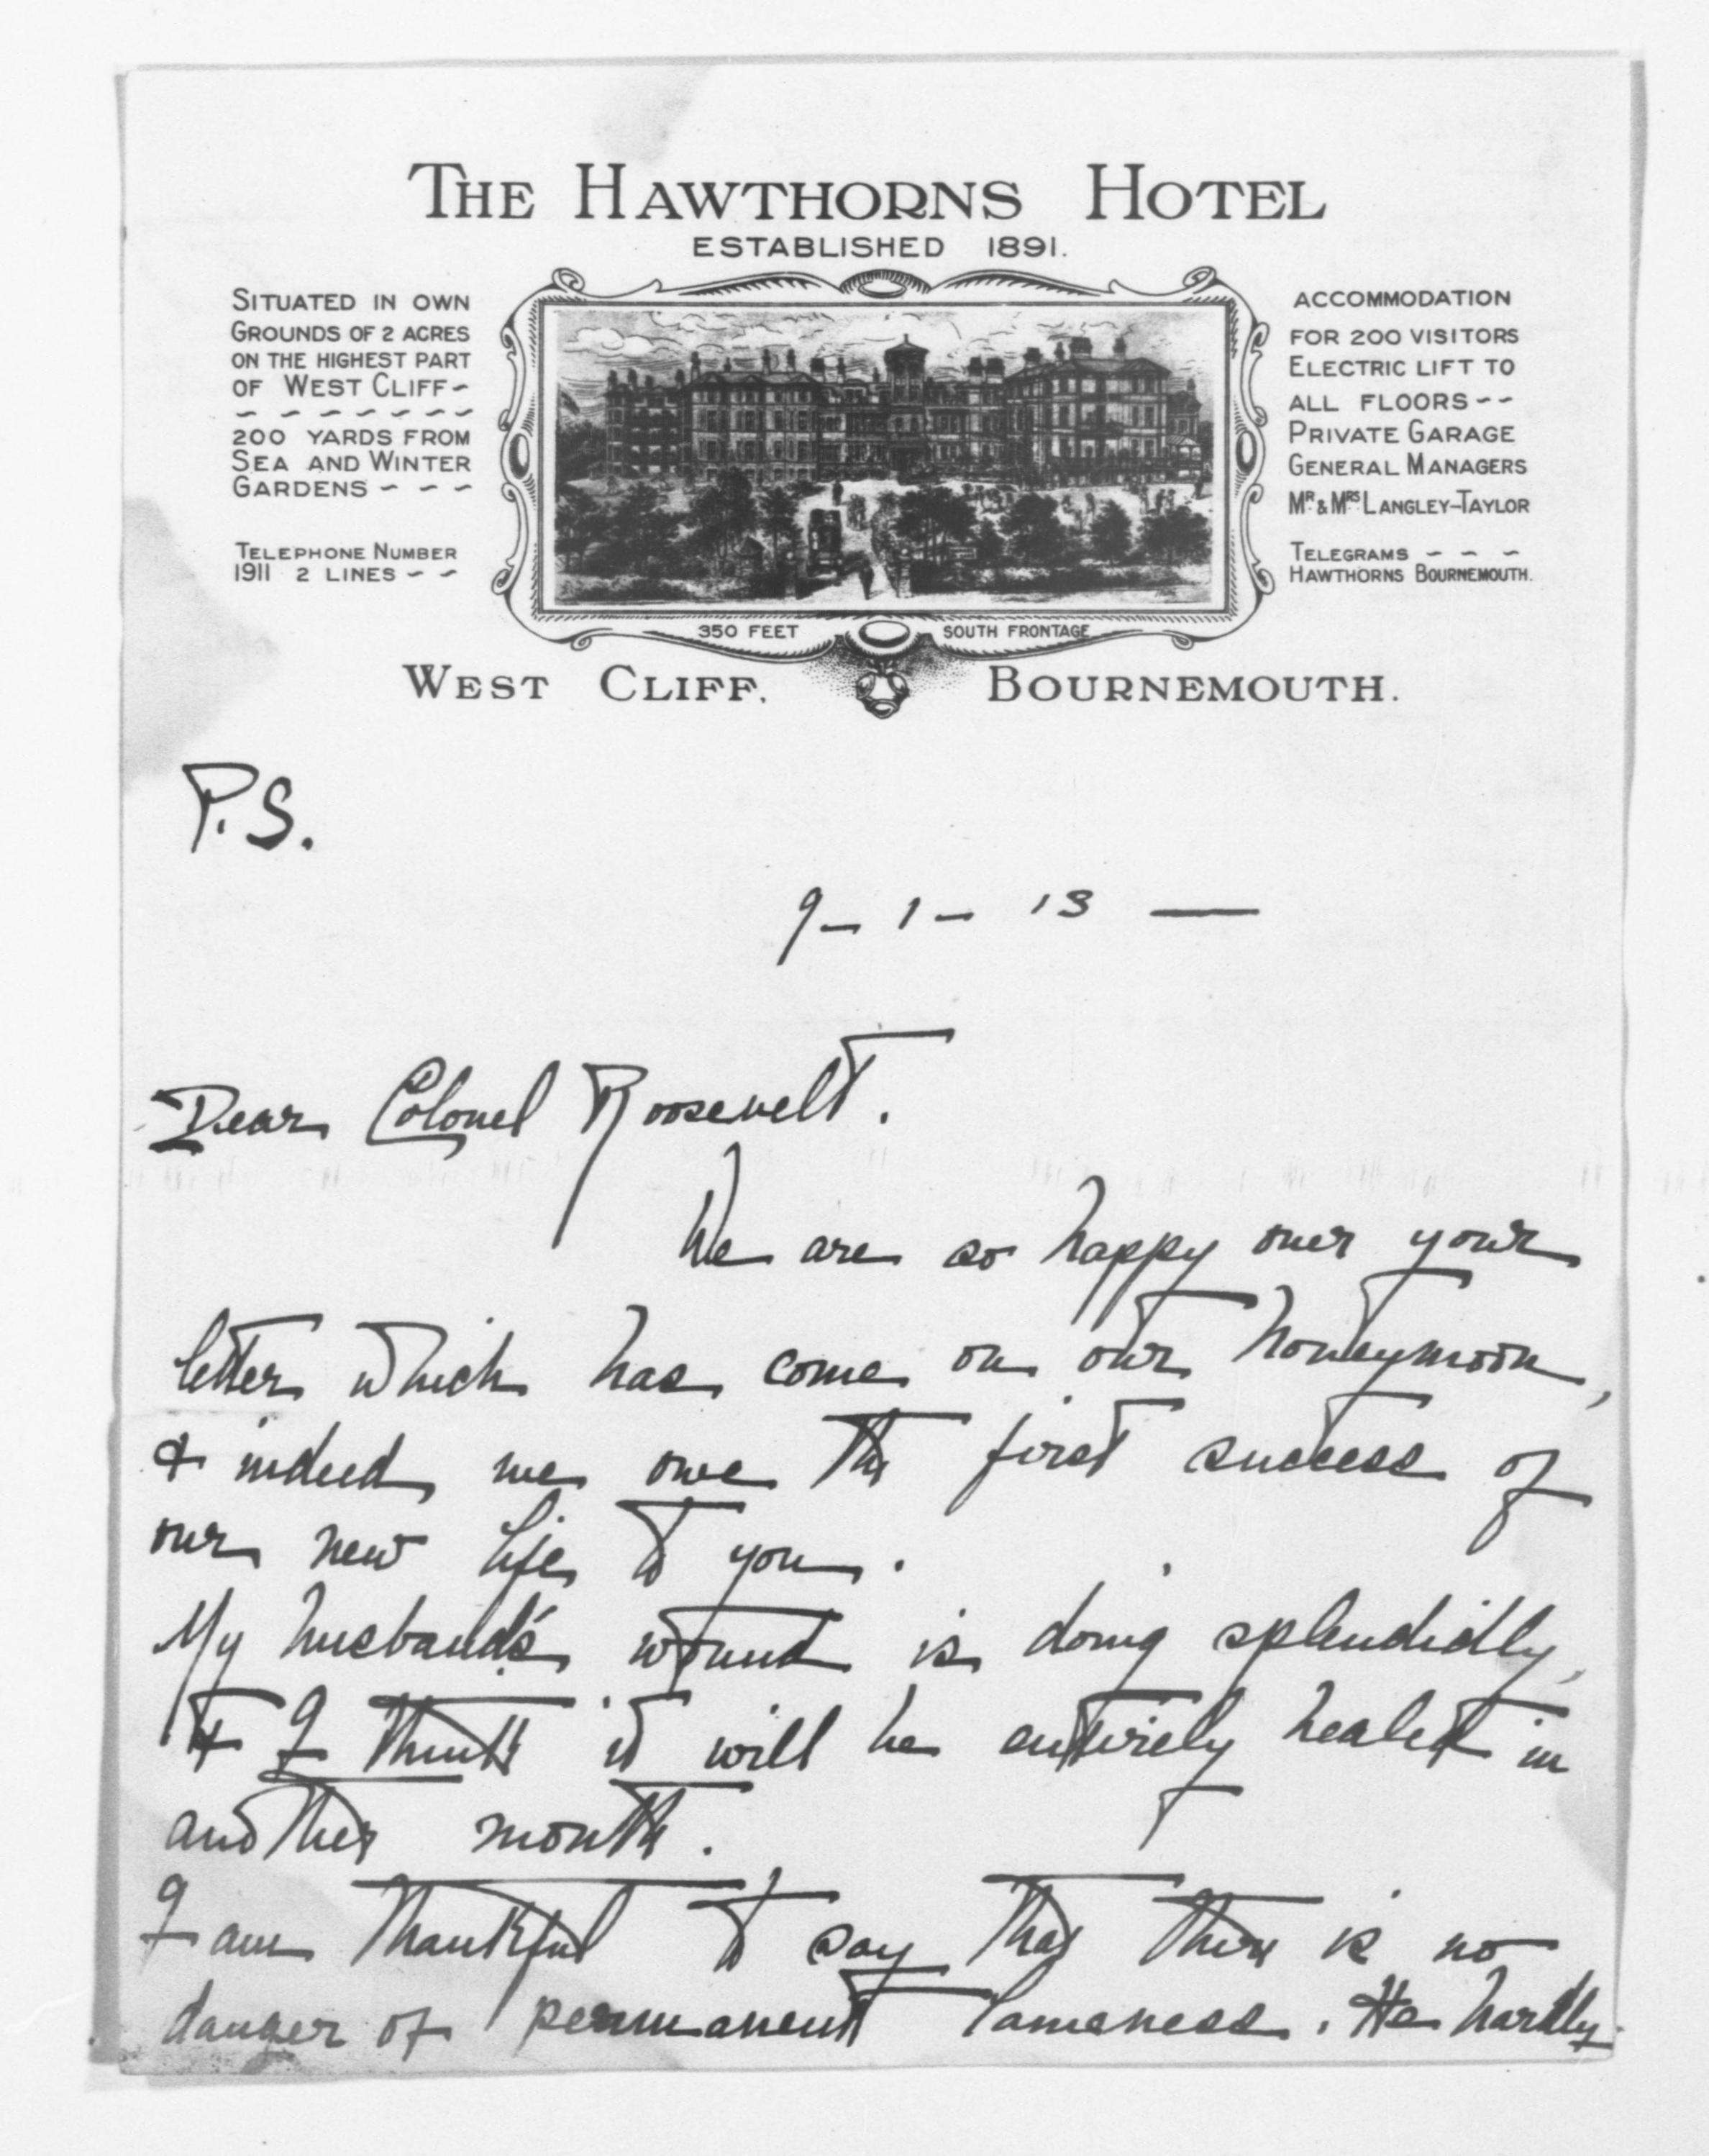 THE HAWTHORNS HOTEL
ESTABLISHED 1891.
SITUATED IN OWN
GROUNDS OF 2 ACRES
ON THE HIGHEST PART
OF WEST CLIFF~
200 YARDS FROM
SEA AND WINTER
GARDENS ~ ~ ~
TELEPHONE NUMBER
1911 2 LINES ~ ~
ACCOMMODATION
FOR 200 VISITORS
ELECTRIC LIFT TO
ALL FLOORS ~ ~
PRIVATE GARAGE
GENERAL MANAGERS
MR. & MRS. LANGLEY-TAYLOR
TELEGRAMS ~ ~ ~
HAWTHORNS BOURNEMOUTH.
350 FEET SOUTH FRONTAGE
WEST CLIFF, BOURNEMOUTH.
P.S.
9 - 1 - 13 —
Dear Colonel Roosevelt.
We are so happy over your
letter which has come on our honeymoon,
& indeed we owe the first success of
our new life to you.
My husband's wound is doing splendidly,
& I think it will be entirely healed in
another month.
I am thankful to say that there is no
danger of permanent lameness. He hardly